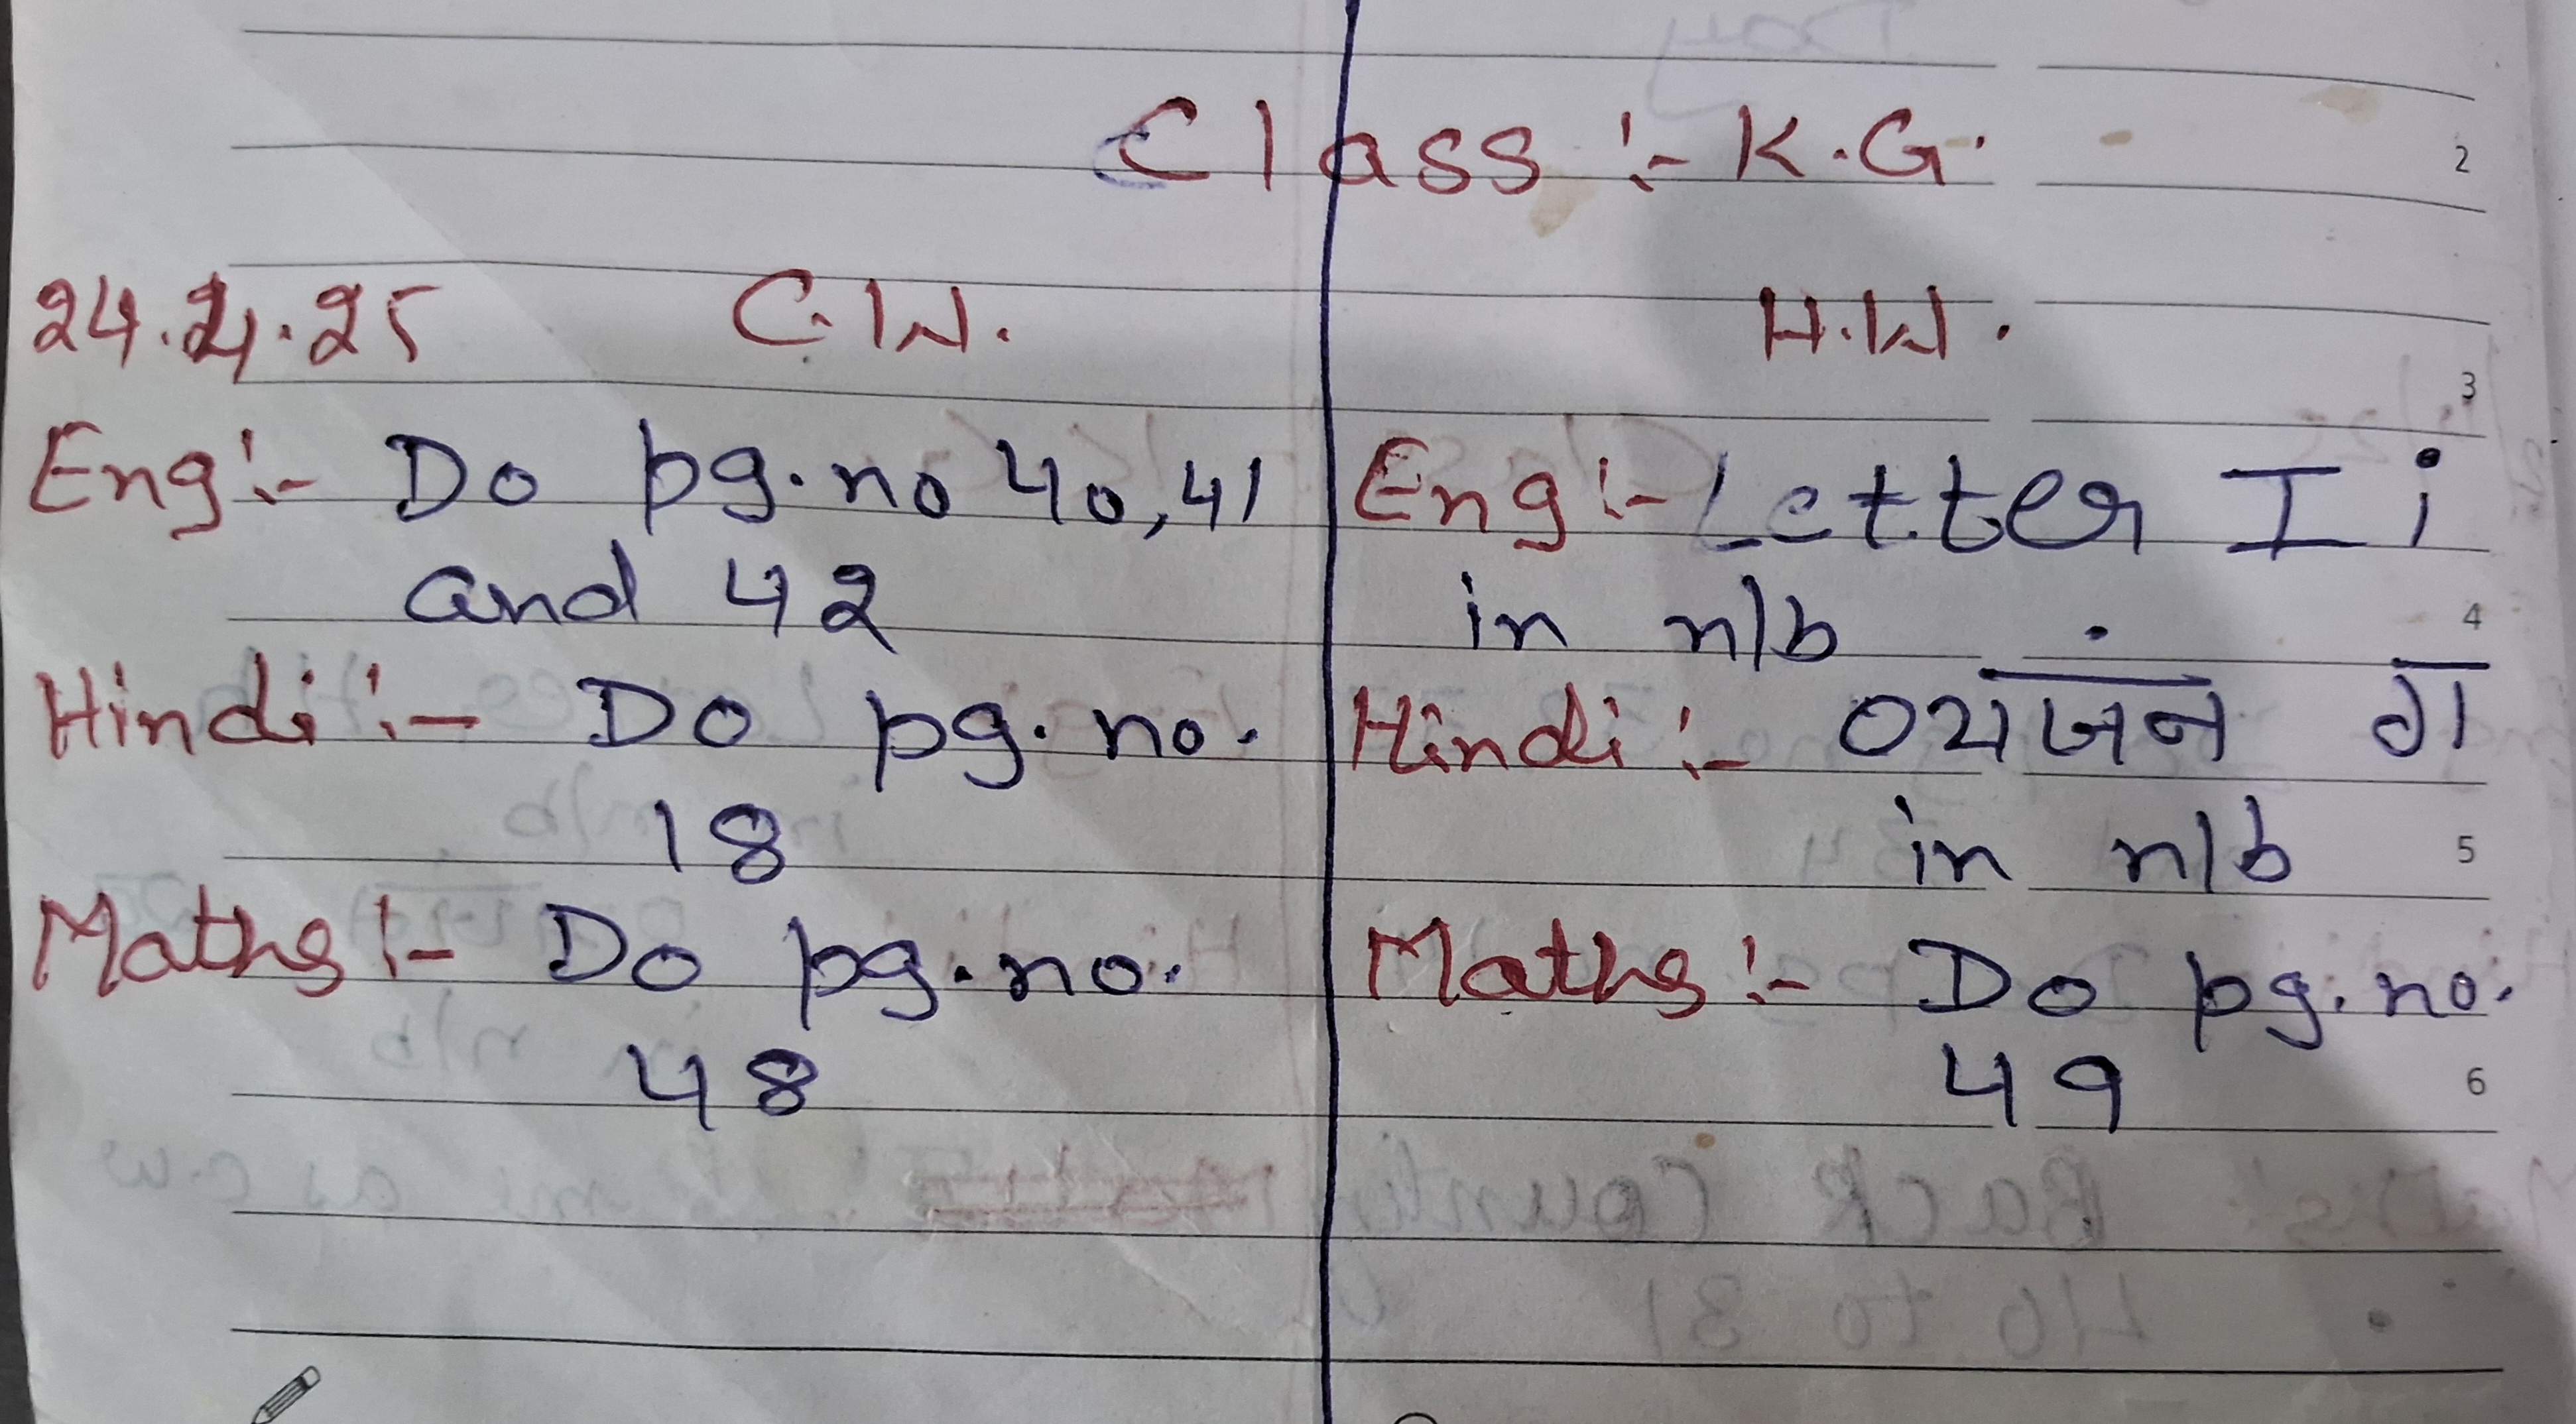 Class :- K.G.
24.4.25 C.W.
Eng :- Do pg. no 40, 41
and 42
Hindi :- Do pg. no.
18
Maths :- Do pg. no.
48
H.W.
Eng :- Letter I i
in n/b
Hindi :- व्यंजन ग
in n/b
Maths :- Do pg. no.
49
2
3
4
5
6